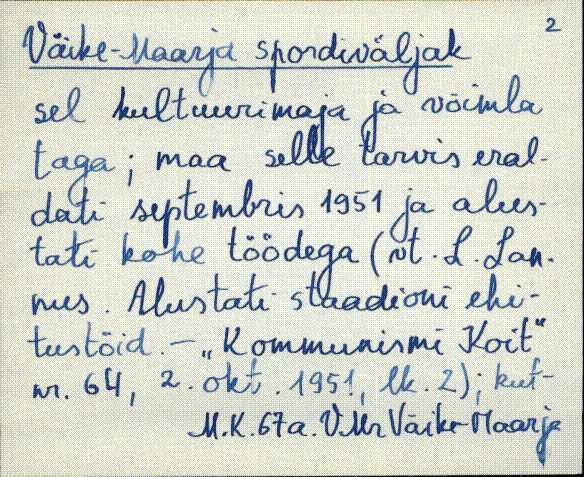 2
Väike-Maarja spordiväljak
sel kultuurimaja ja võimla
taga; maa selle tarvis eral-
dati septembris 1951 ja alus-
tati kohe töödega (vt. L. Lan-
nus. Alustati staadioni ehi-
tustöid. – „Kommunismi Koit"
nr. 64, 2. okt. 1951, lk. 2); kut-
M.K. 67a. VMr Väike-Maarja